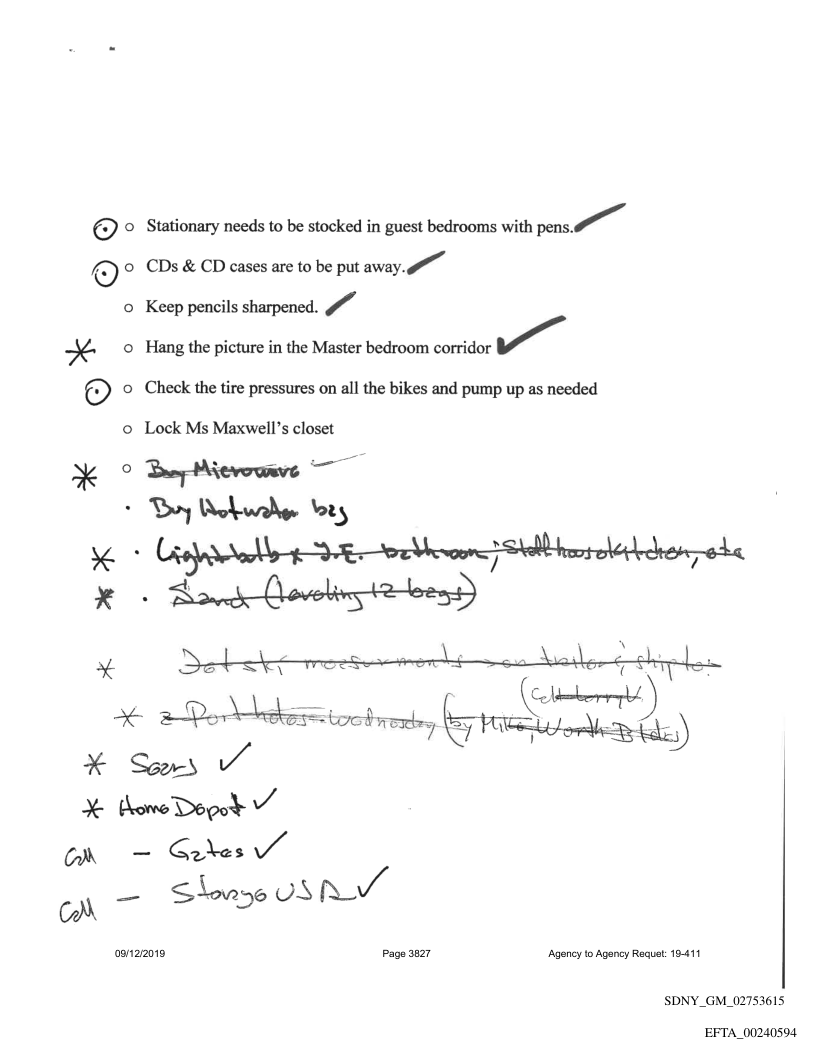 o Stationary needs to be stocked in guest bedrooms with pens.
o CDs & CD cases are to be put away.
o Keep pencils sharpened.
* o Hang the picture in the Master bedroom corridor
o Check the tire pressures on all the bikes and pump up as needed
o Lock Ms Maxwell's closet
* o Buy Microwave
· Buy Hotwater bag
* · Lightbulb x J.E. bathroom, Staff house kitchen, etc
* · Sand (leveling 12 bags)
* Jet ski measurments on trailer &
(Call
* 2 Port holes = wednesday (by Mike, Worth
* Sears ✓
* Home Depot ✓
Call – Gates ✓
Call – Storage USA ✓
09/12/2019 Page 3827 Agency to Agency Requet: 19-411
SDNY_GM_02753615
EFTA_00240594